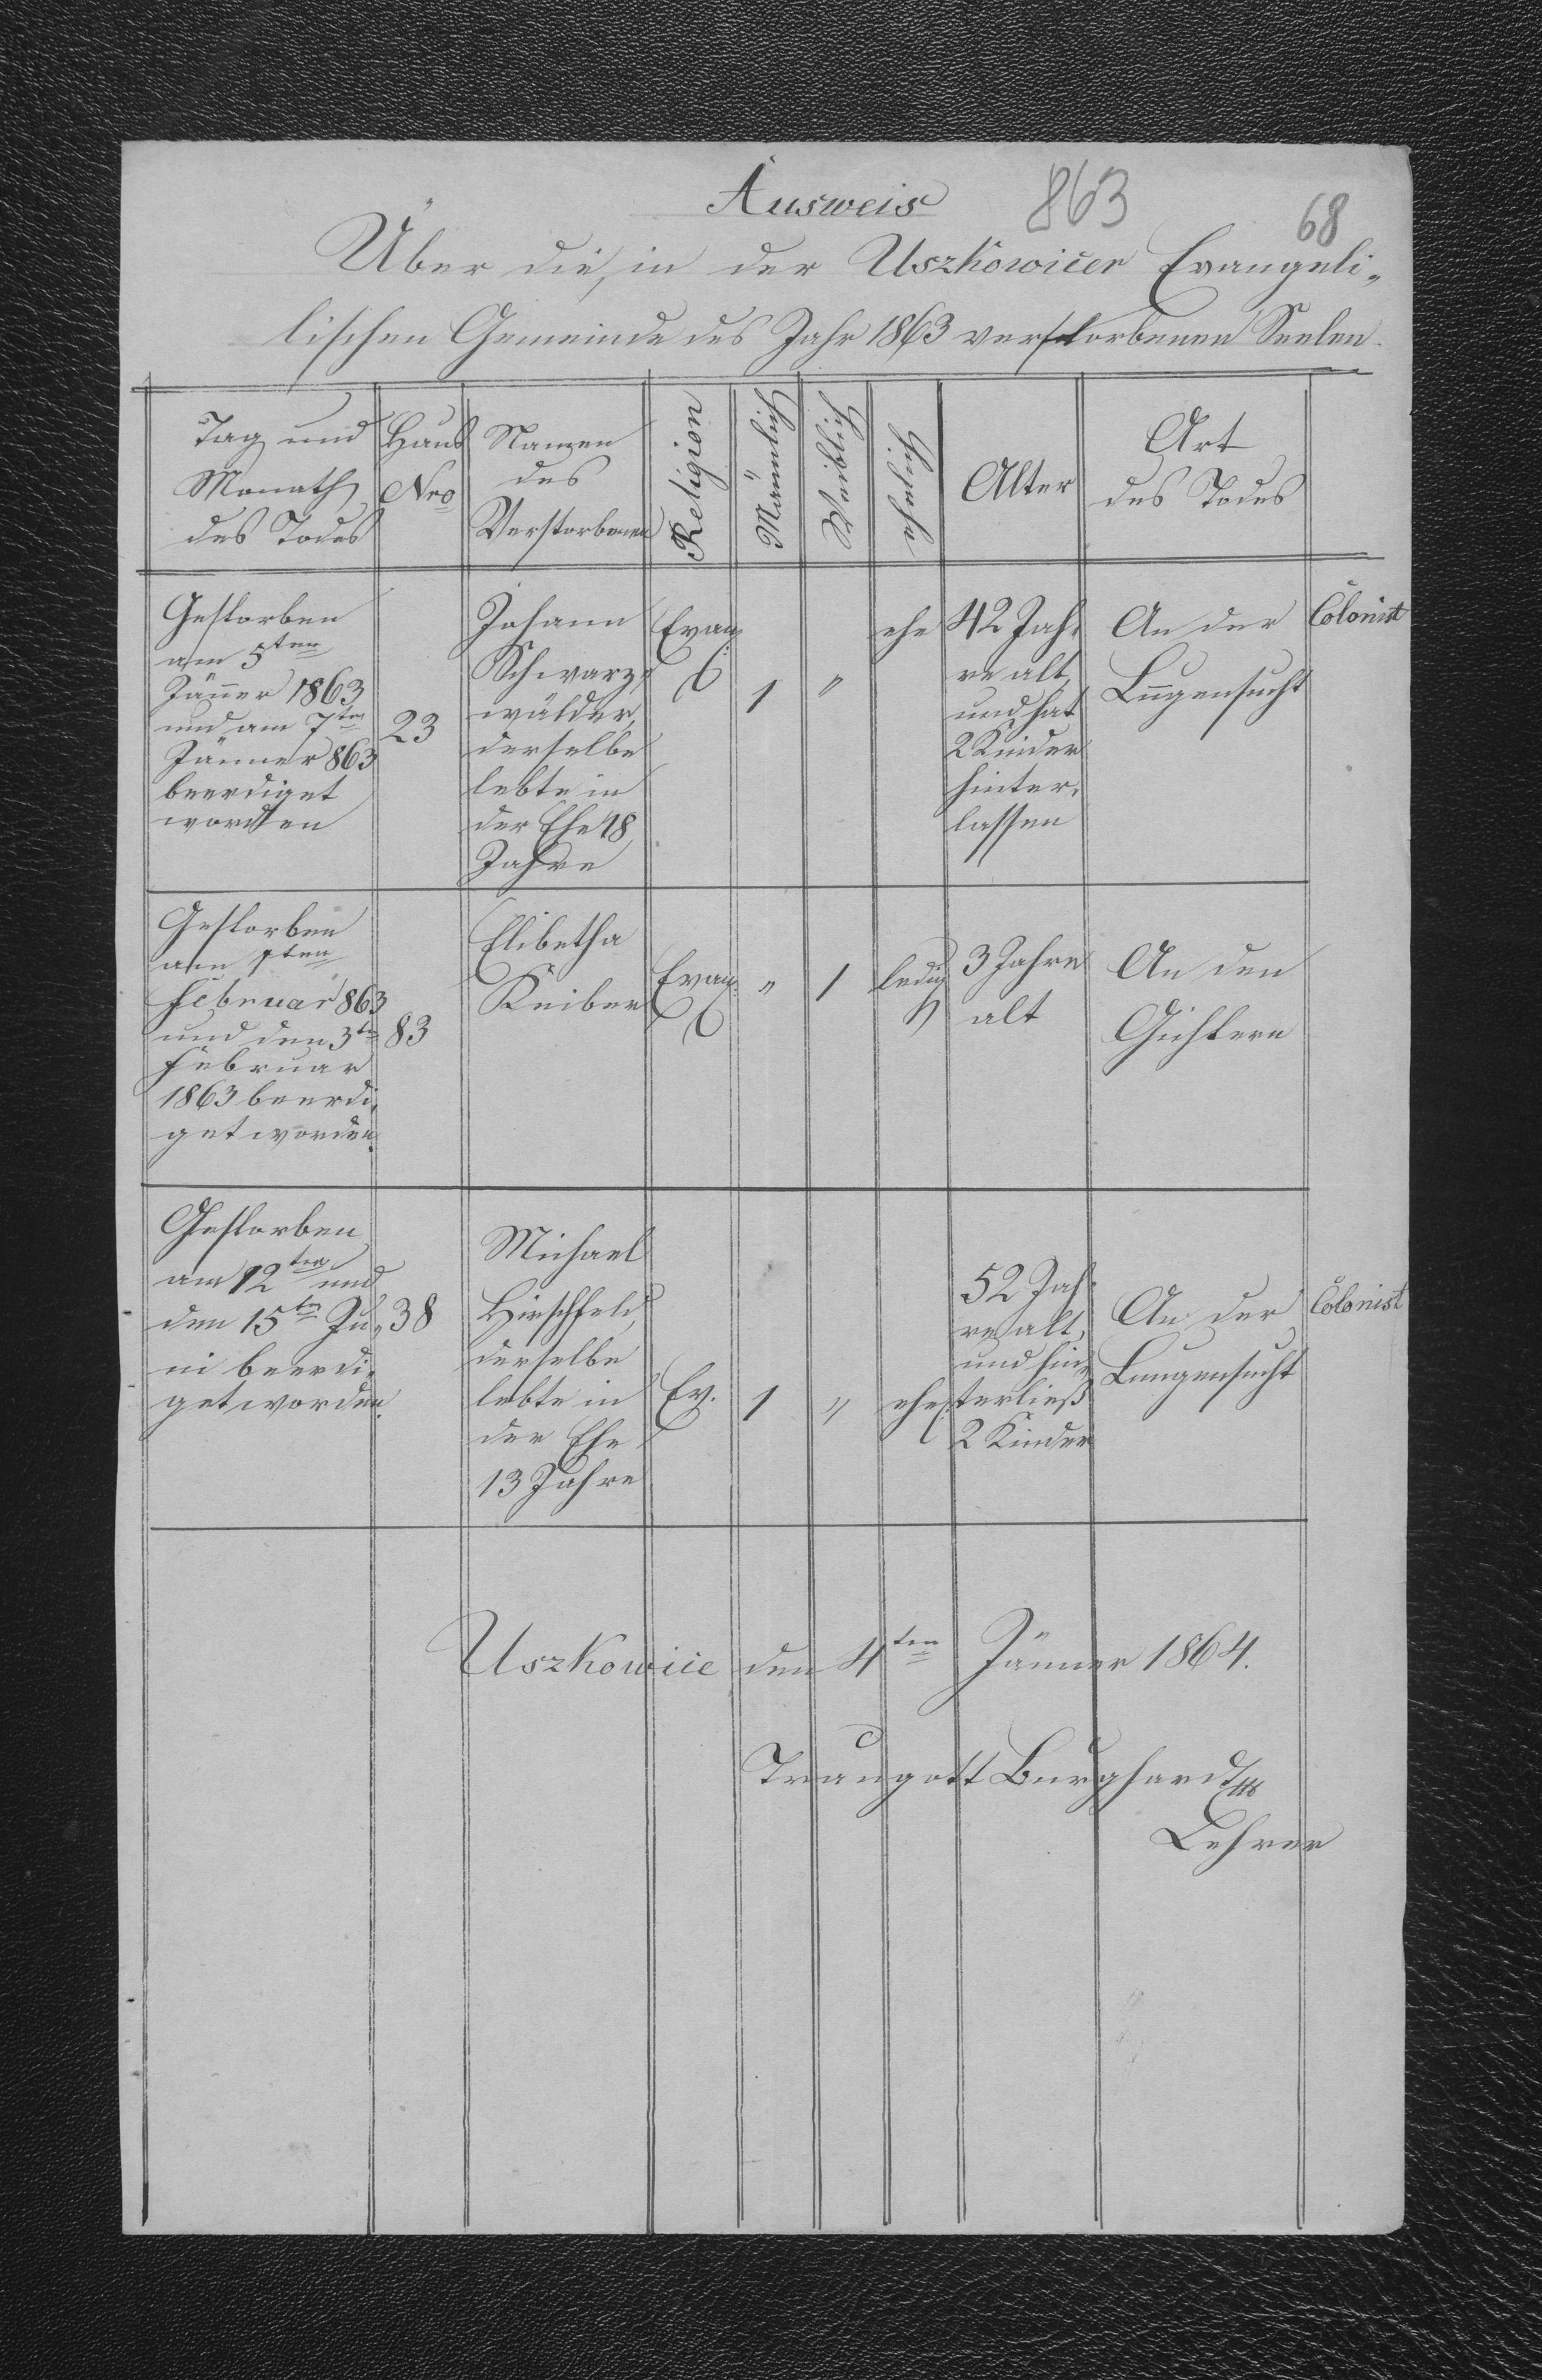 Ausweis
863
68
Über die, in der Uszkowicer Evangeli„
lischen Gemeinde des Jahr 1863 verstorbenen Seelen.
Tag und
Monath
des Todes
Haus
Nro
Namen
des
Verstorbenen
Religion
Männlich
Weiblich
ehelich
Alter
Art
des Todes
Gestorben
am 5ten
Jänner 1863
und am 7ten
Jänner 863
beerdiget
worden
23
Johann
Schwarz„
wälder,
derselbe
lebte in
der Ehe 18
Jahre
Evang:
1
"
ehe
42 Jah„
re alt,
und hat
2 Kinder
hinter„
lassen
An der
Lungensucht
Colonist
Gestorben
am 1ten
Februar 863
und den 3ten
Februar
1863 beerdi„
get worden.
83
Elibetha
Keiber
Evang:
"
1
ledig
3 Jahre
alt
An den
Gichtern
Gestorben
am 12ten und
den 15ten Ju„
ni beerdi„
get worden.
38
Michael
Hirschfeld,
derselbe
lebte in
der Ehe
13 Jahre
Ev.
1
"
ehe:
52 Jah„
re alt,
und hin„
terließ
2 Kinder
An der
Lungensucht
Colonist
Uszkowice den 4ten Jänner 1864.
Traugott Burghardt
Lehrer